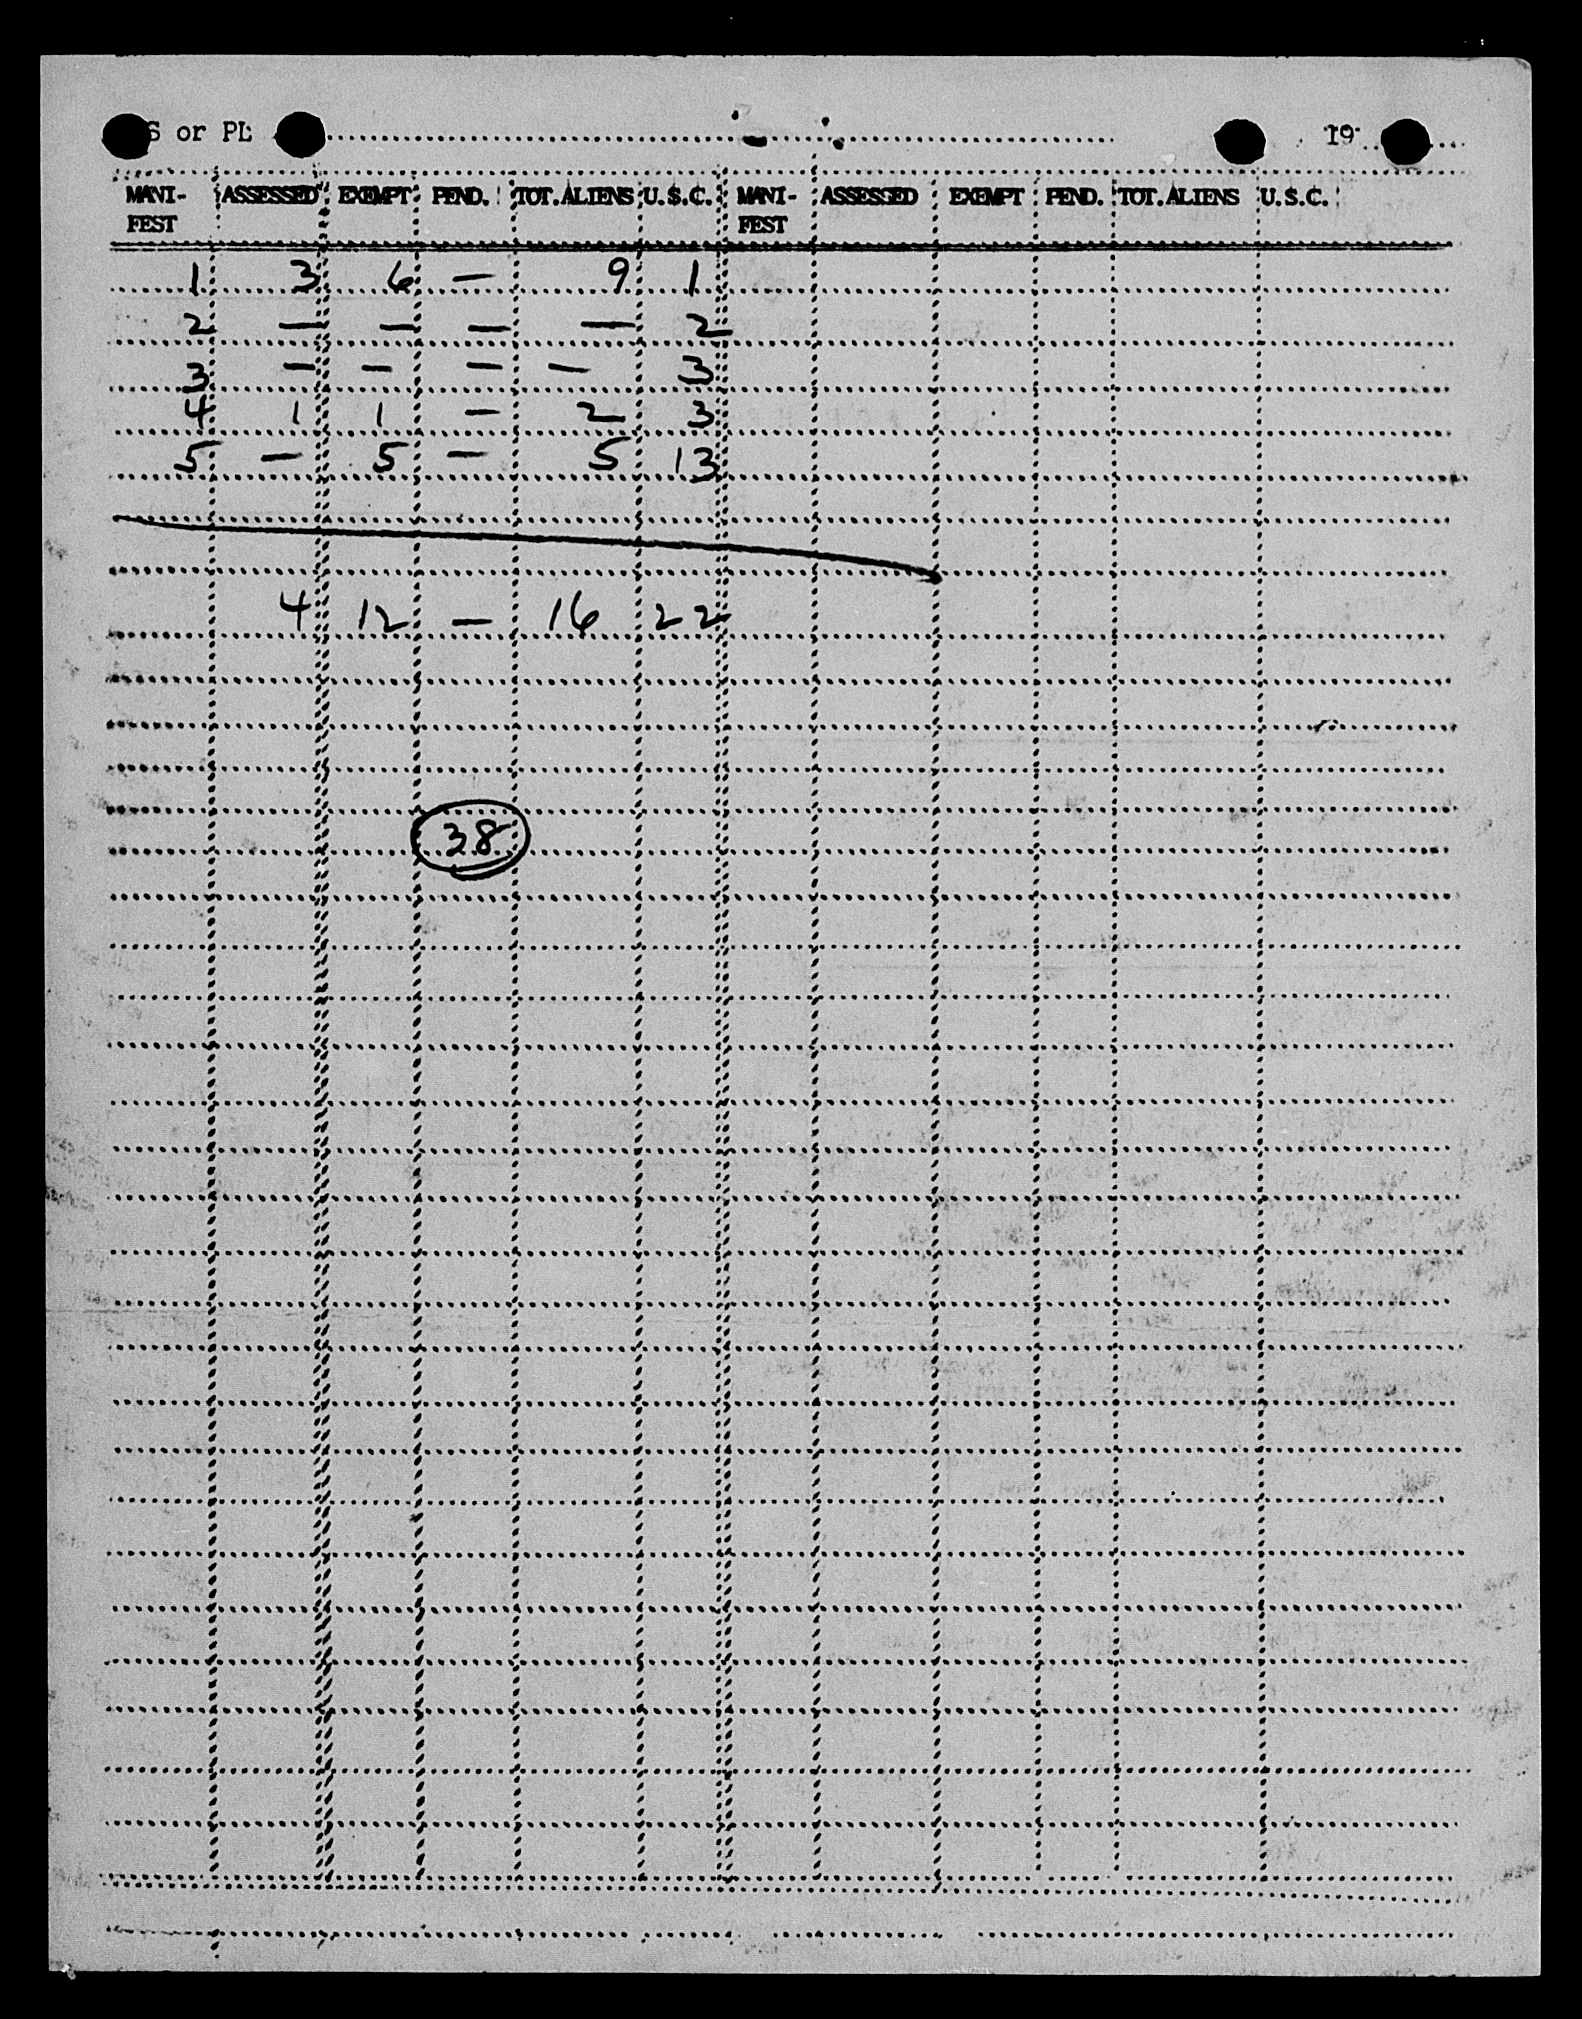 S or PL 19
MANI- ASSESSED EXEMPT PEND. TOT.ALIENS U.S.C. MANI- ASSESSED EXEMPT PEND. TOT.ALIENS U.S.C.
FEST FEST
1 3 6 — 9 1
2 — — — — 2
3 — — — — 3
4 1 1 — 2 3
5 — 5 — 5 13
4 12 — 16 22
38